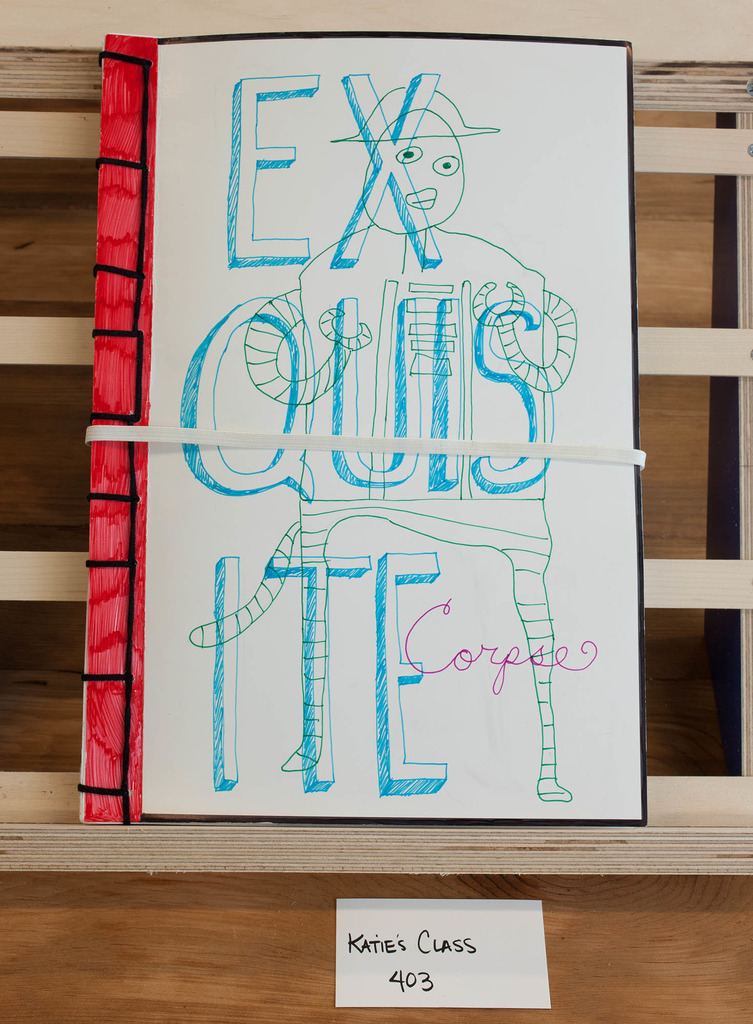 EX
QUIS
ITE
Corpse
KATIE'S CLASS
403